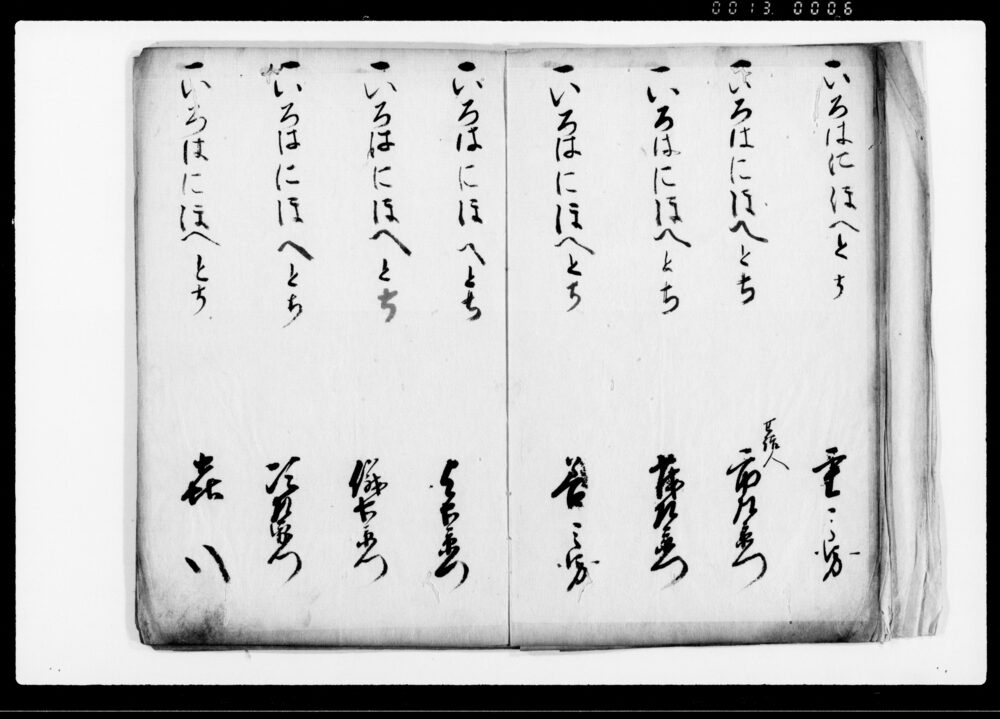 0013 0006
一いろはにほへとち
重三郎
一いろはにほへとち
世話人
市左衛門
一いろはにほへとち
一いろはにほへとち
善三郎
一いろはにほへとち
与右衛門
一いろはにほへとち
儀右衛門
一いろはにほへとち
次左衛門
一いろはにほへとち
森八